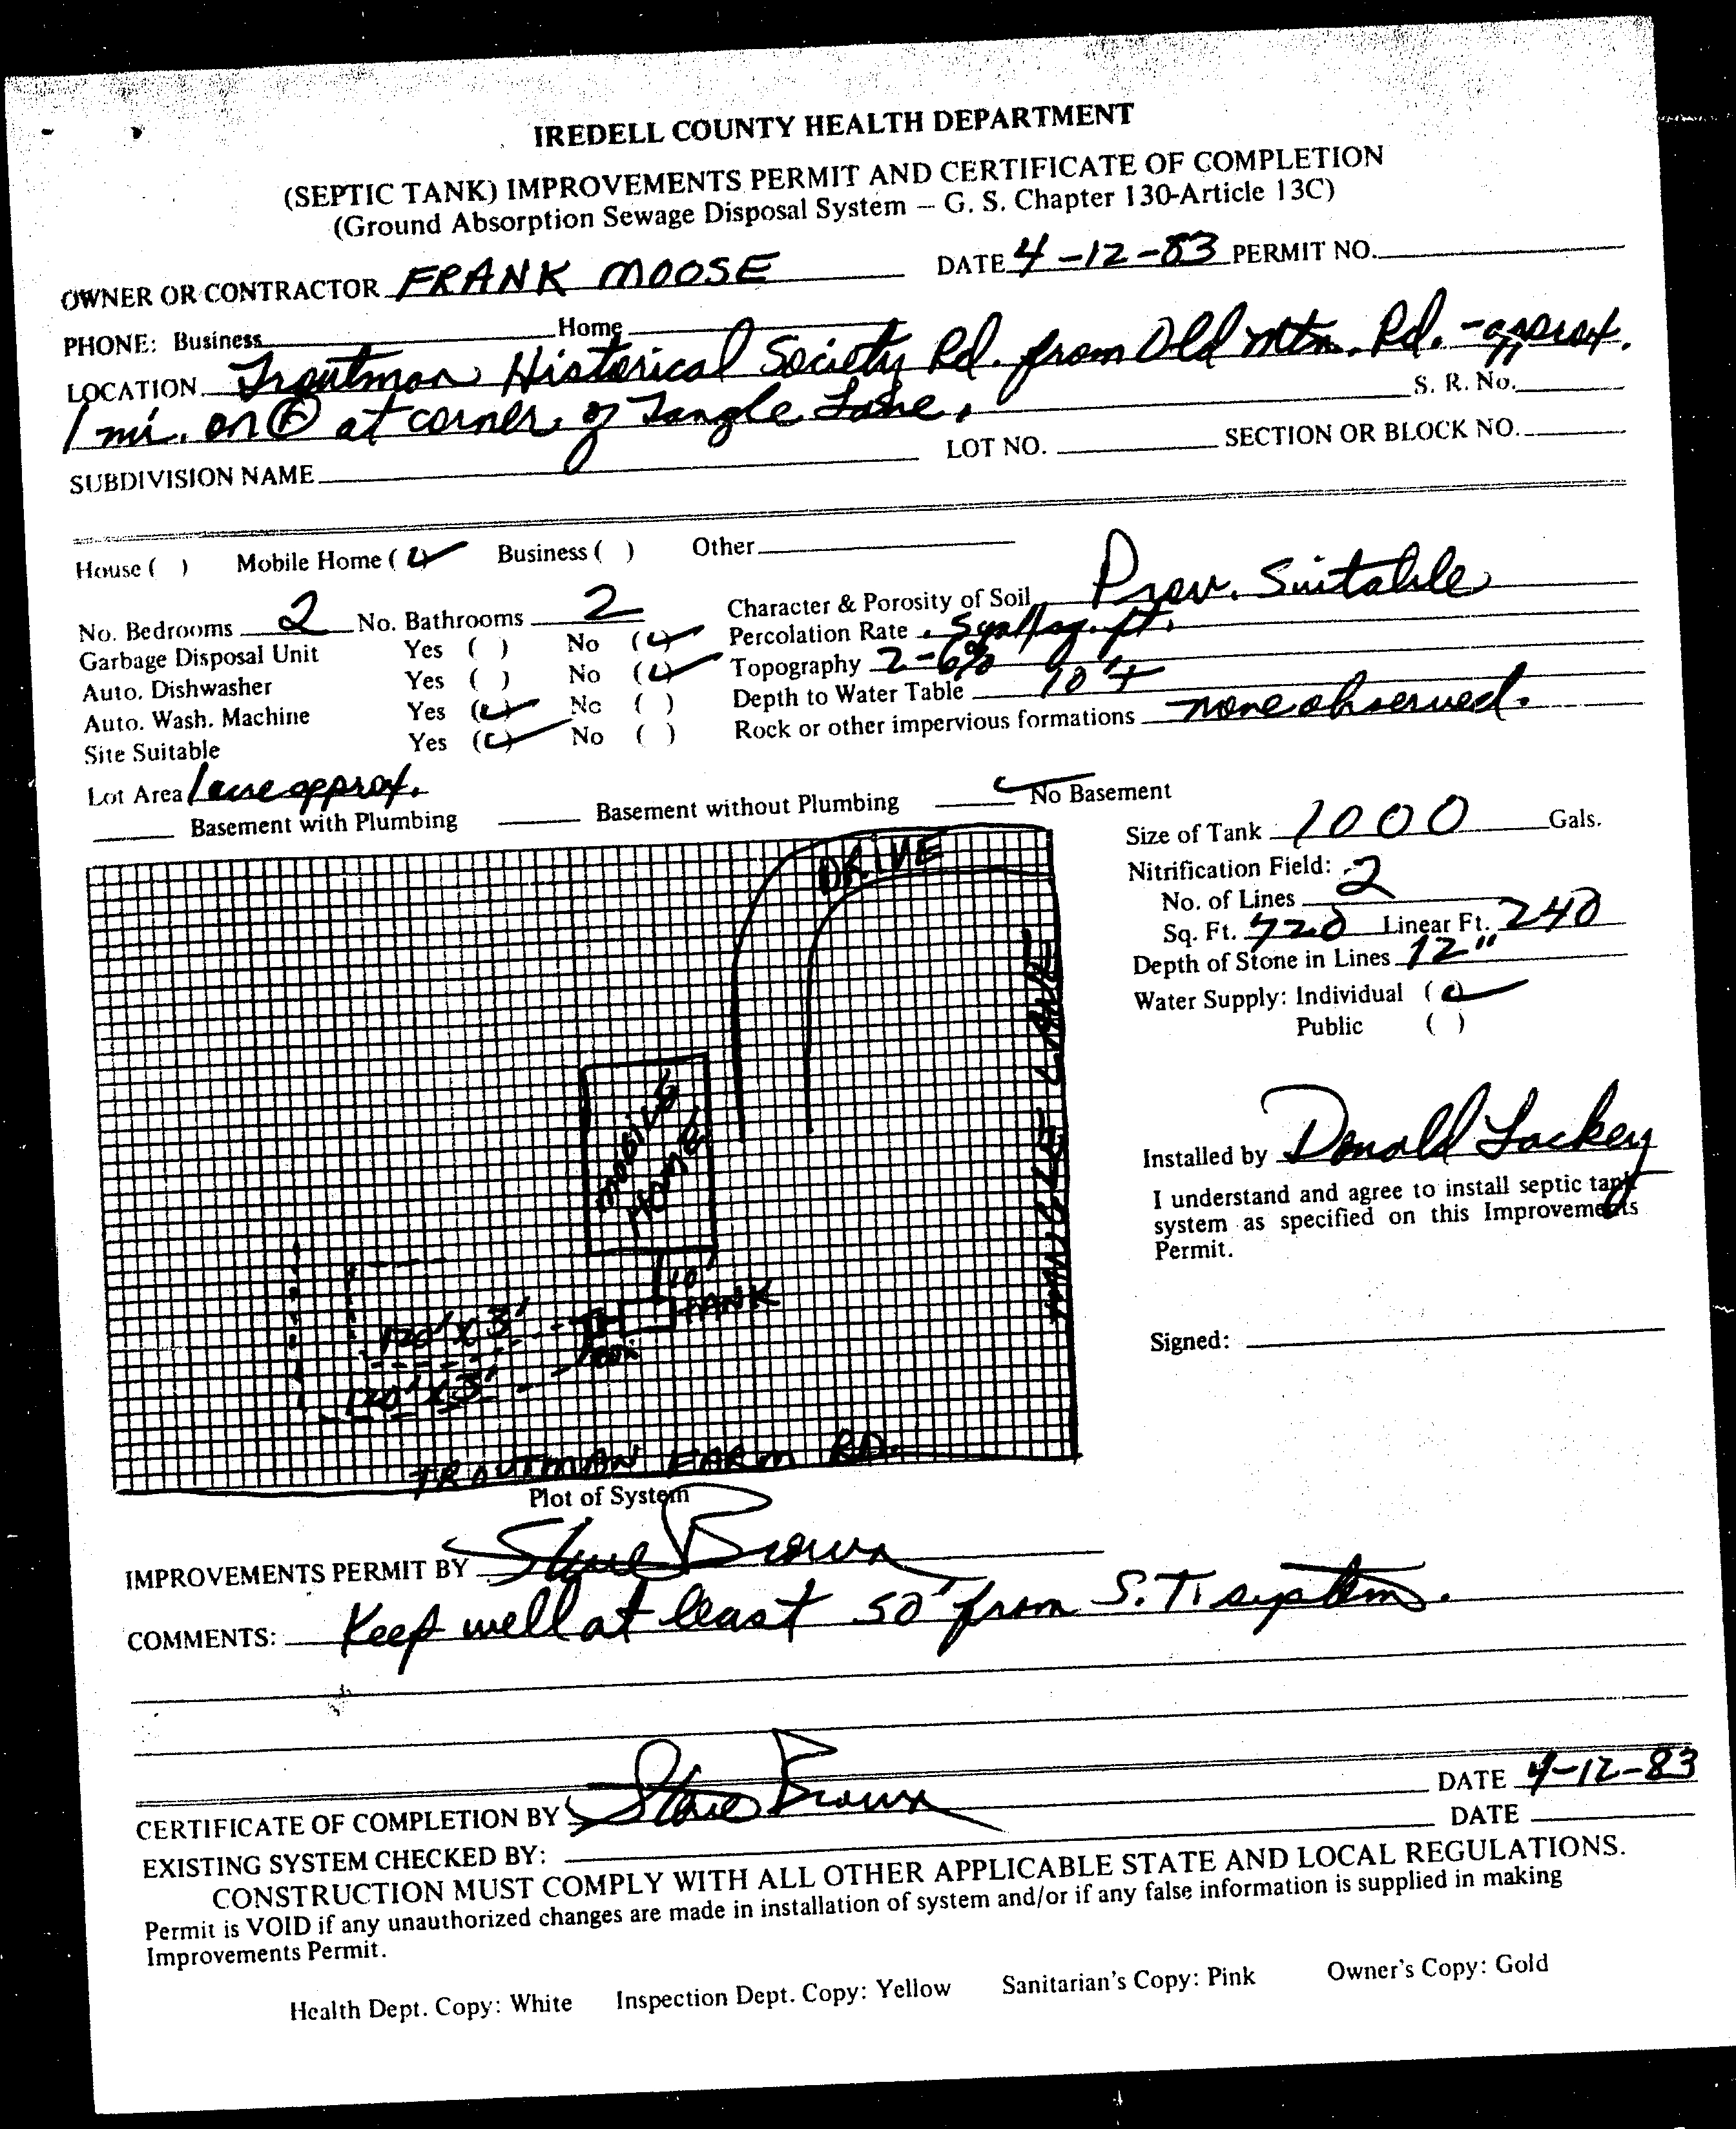 IREDELL COUNTY HEALTH DEPARTMENT
(SEPTIC TANK) IMPROVEMENTS PERMIT AND CERTIFICATE OF COMPLETION
(Ground Absorption Sewage Disposal System – G. S. Chapter 130-Article 13C)
OWNER OR CONTRACTOR FRANK MOOSE DATE 4-12-83 PERMIT NO.
PHONE: Business Home
LOCATION Troutman Historical Society Rd. from Old Mtn. Rd. - approx.
1 mi. on R at corner of Tangle Lane. S. R. No.
SUBDIVISION NAME LOT NO. SECTION OR BLOCK NO.
House ( ) Mobile Home (✓) Business ( ) Other
No. Bedrooms 2 No. Bathrooms 2 Character & Porosity of Soil Prov. Suitable
Garbage Disposal Unit Yes ( ) No (✓) Percolation Rate .5 gal/sq. ft.
Auto. Dishwasher Yes ( ) No (✓) Topography 2-6%
Auto. Wash. Machine Yes (✓) No ( ) Depth to Water Table 10'+
Site Suitable Yes (✓) No ( ) Rock or other impervious formations none observed.
Lot Area 1 acre approx.
Basement with Plumbing Basement without Plumbing ✓ No Basement
Size of Tank 1000 Gals.
Nitrification Field:
No. of Lines 2
Sq. Ft. 720 Linear Ft. 240
Depth of Stone in Lines 12"
Water Supply: Individual (✓)
Public ( )
DRIVE
TANGLE LANE
MOBILE
HOME
10'
TANK
BOX
120' X 3'
120' X 3'
TROUTMAN FARM RD.
Plot of System
Installed by Donald Lackey
I understand and agree to install septic tank
system as specified on this Improvements
Permit.
Signed:
IMPROVEMENTS PERMIT BY Steve Brown
COMMENTS: Keep well at least 50' from S.T. system.
CERTIFICATE OF COMPLETION BY Steve Brown DATE 4-12-83
EXISTING SYSTEM CHECKED BY: DATE
CONSTRUCTION MUST COMPLY WITH ALL OTHER APPLICABLE STATE AND LOCAL REGULATIONS.
Permit is VOID if any unauthorized changes are made in installation of system and/or if any false information is supplied in making
Improvements Permit.
Health Dept. Copy: White Inspection Dept. Copy: Yellow Sanitarian's Copy: Pink Owner's Copy: Gold